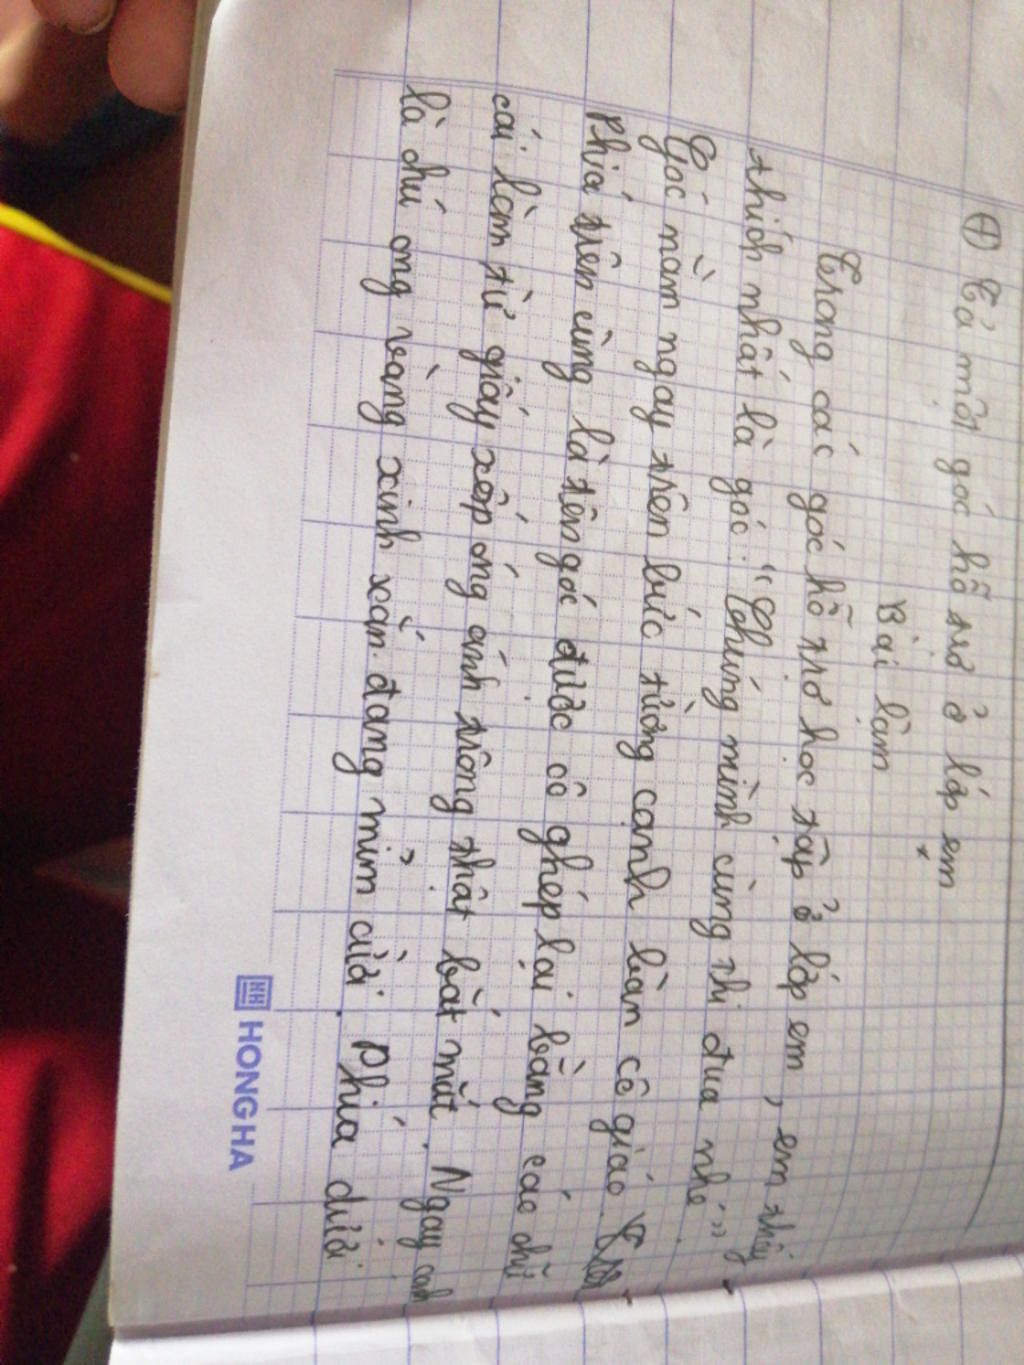 + Tả một góc hỗ trợ ở lớp em
Bài làm
Trong các góc hỗ trợ học tập ở lớp em, em thấy
thích nhất là góc: "Chúng mình cùng thi đua nhé".
Góc nằn ngay trên bức tường cạnh bàn cô giáo.
Phiá trên cùng là tên góc được cô ghép lại bằng các chữ
cái làm từ giấy xốp óng ánh trông thật bắt mắt. Ngay cạnh
là chú ong vàng xinh xắn đang mỉm cười. Phiá dưới
HONG HA